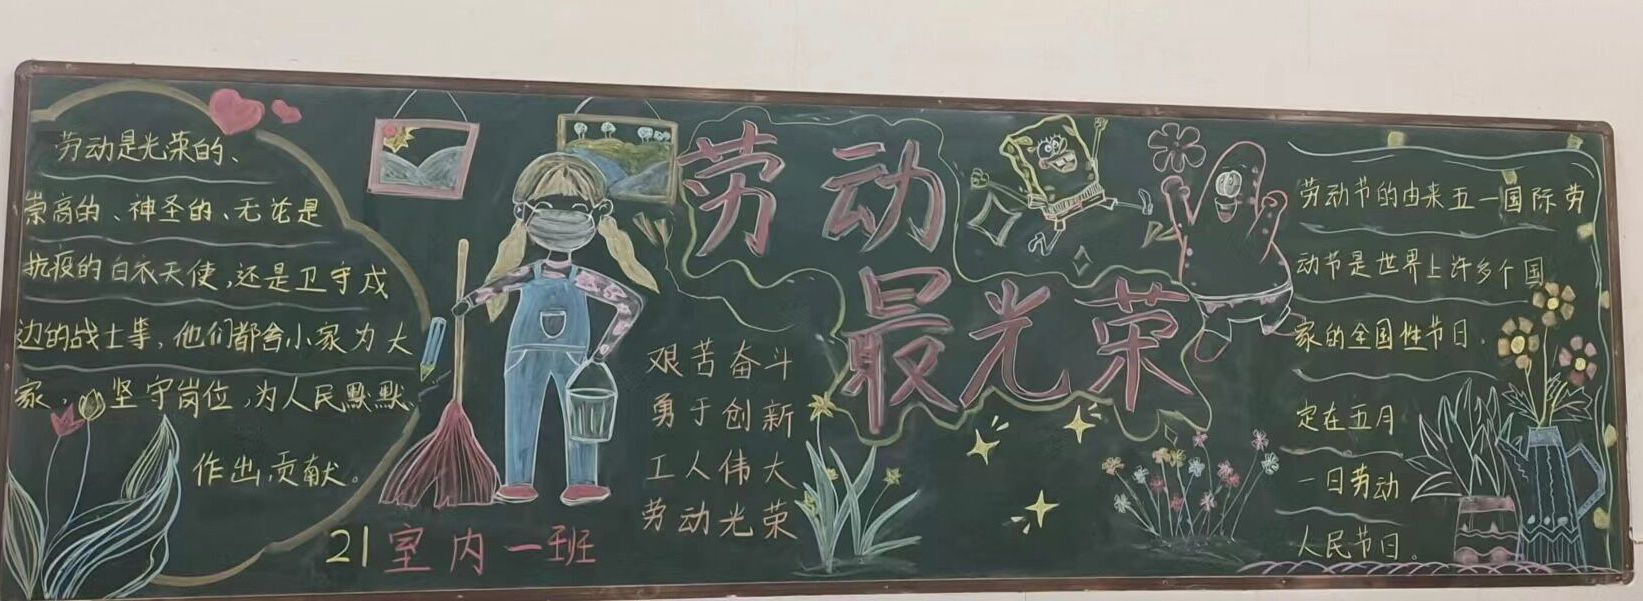 劳动是光荣的、
崇高的、神圣的、无论是
抗疫的白衣天使,还是卫守戍
边的战士等,他们都舍小家为大
家,坚守岗位,为人民默默、
作出贡献。
21室内一班
劳动
最光荣
艰苦奋斗
勇于创新
工人伟大
劳动光荣
劳动节的由来五一国际劳
动节是世界上许多个国
家的全国性节日.
定在五月
一日劳动
人民节日。